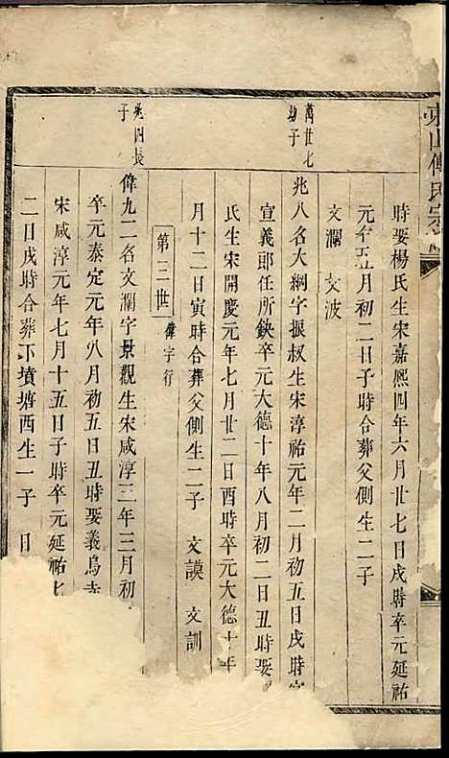 東山傅氏宗
時娶楊氏生宋嘉熙四年六月廿七日戌時卒元延祐
元年五月初二日子時合葬父側生二子
文瀾 文波
萬世七
幼子
兆八名大綱字振叔生宋淳祐元年二月初五日戌時
宣義郎任所缺卒元大德十年八月初二日丑時娶
氏生宋開慶元年七月廿二日酉時卒元大德十年
月十二日寅時合葬父側生二子 文謨 文訓
第三世 偉字行
兆四長
子
偉九二名文瀾字景觀生宋咸淳二年三月初
卒元泰定元年八月初五日丑時娶義烏
宋咸淳元年七月十五日子時卒元延祐七
二日戌時合葬下墳塘西生一子